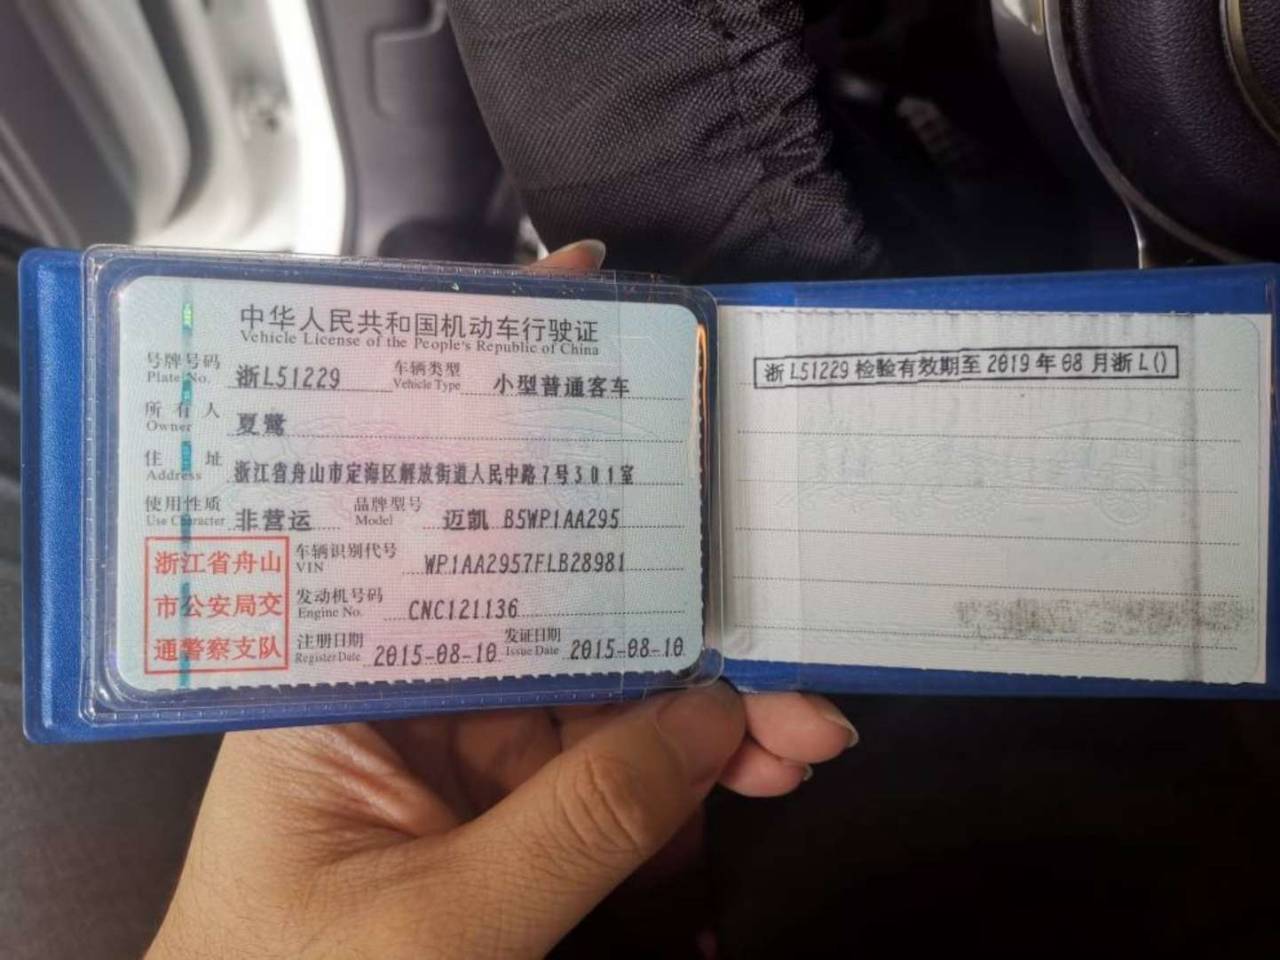 中华人民共和国机动车行驶证
Vehicle License of the People's Republic of China
号牌号码 浙L51229 车辆类型 小型普通客车
Plate No. Vehicle Type
所有人 夏鹭
Owner
住址 浙江省舟山市定海区解放街道人民中路7号301室
Address
使用性质 非营运 品牌型号 迈凯 B5WP1AA295
Use Character Model
浙江省舟山
市公安局交
通警察支队
车辆识别代号 WP1AA2957FLB28981
VIN
发动机号码 CNC121136
Engine No.
注册日期 2015-08-10 发证日期 2015-08-10
Register Date Issue Date
浙L51229检验有效期至2019年08月浙L()